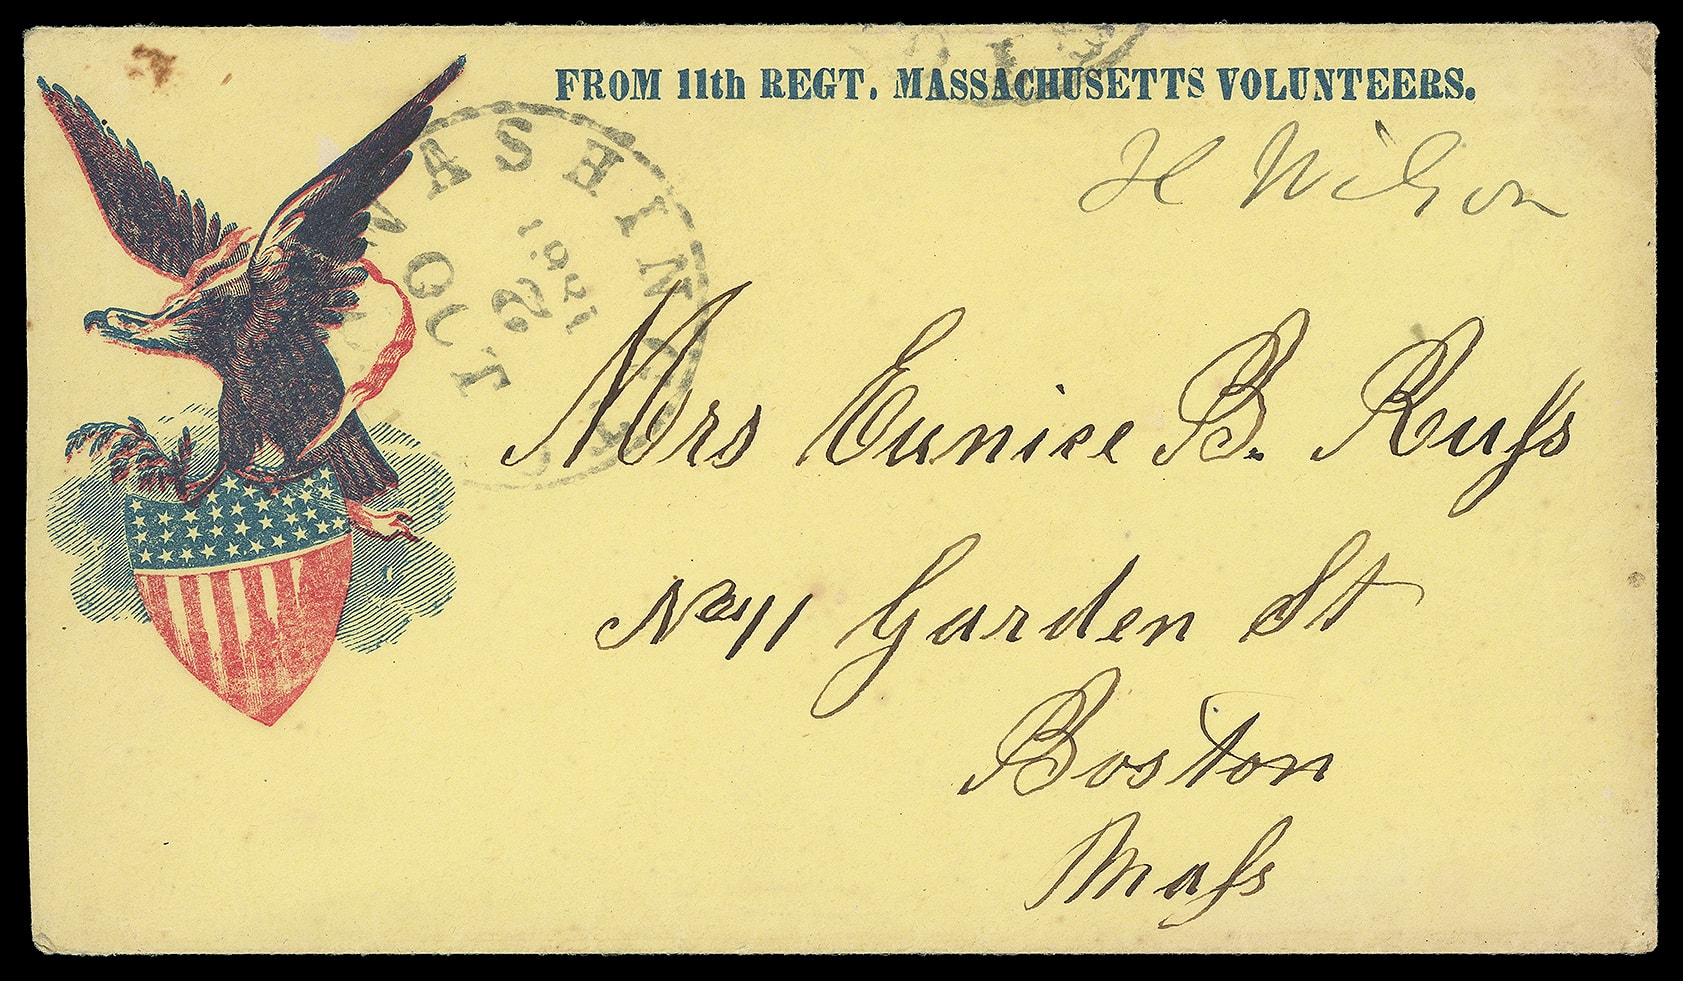 FROM 11th REGT. MASSACHUSETTS VOLUNTEERS.
H Wilson
WASHINGT
OCT
2
1861
Mrs Eunice B. Ruſs
No 11 Garden St
Boston
Maſs